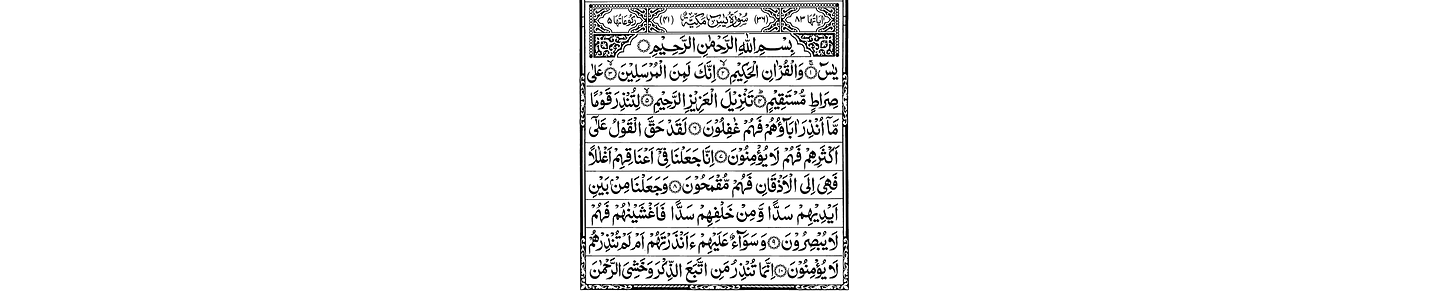 اٰیَاتُهَا ٨٣ (٣٦) سُوْرَةُ یٰسٓ مَكِّیَّةٌ (٤١) رُكُوْعَاتُهَا ٥
بِسْمِ اللّٰهِ الرَّحْمٰنِ الرَّحِیْمِ
یٰسٓ ۚ﴿١﴾ وَالْقُرْاٰنِ الْحَكِیْمِ ۙ﴿٢﴾ اِنَّكَ لَمِنَ الْمُرْسَلِیْنَ ۙ﴿٣﴾ عَلٰی
صِرَاطٍ مُّسْتَقِیْمٍ ؕ﴿٤﴾ تَنْزِیْلَ الْعَزِیْزِ الرَّحِیْمِ ۙ﴿٥﴾ لِتُنْذِرَ قَوْمًا
مَّاۤ اُنْذِرَ اٰبَآؤُهُمْ فَهُمْ غٰفِلُوْنَ ﴿٦﴾ لَقَدْ حَقَّ الْقَوْلُ عَلٰۤی
اَكْثَرِهِمْ فَهُمْ لَا یُؤْمِنُوْنَ ﴿٧﴾ اِنَّا جَعَلْنَا فِیْۤ اَعْنَاقِهِمْ اَغْلٰلًا
فَهِیَ اِلَی الْاَذْقَانِ فَهُمْ مُّقْمَحُوْنَ ﴿٨﴾ وَجَعَلْنَا مِنْۢ بَیْنِ
اَیْدِیْهِمْ سَدًّا وَّمِنْ خَلْفِهِمْ سَدًّا فَاَغْشَیْنٰهُمْ فَهُمْ
لَا یُبْصِرُوْنَ ﴿٩﴾ وَسَوَآءٌ عَلَیْهِمْ ءَاَنْذَرْتَهُمْ اَمْ لَمْ تُنْذِرْهُمْ
لَا یُؤْمِنُوْنَ ﴿١٠﴾ اِنَّمَا تُنْذِرُ مَنِ اتَّبَعَ الذِّكْرَ وَخَشِیَ الرَّحْمٰنَ